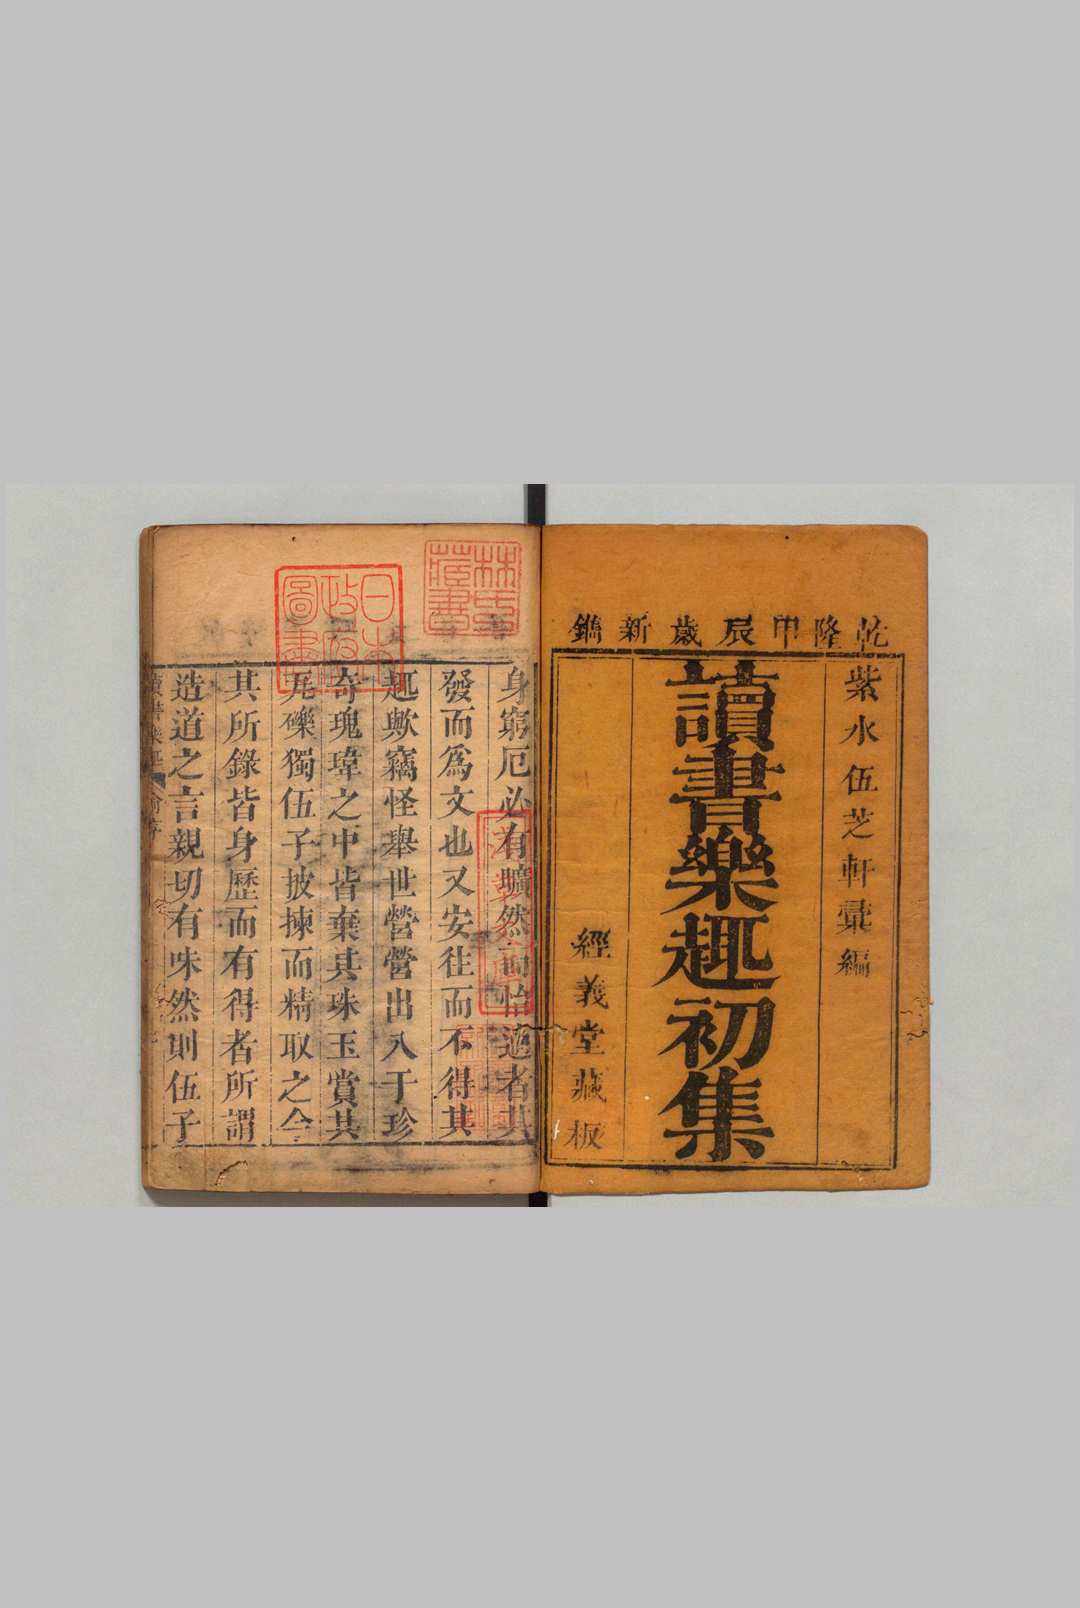 乾隆甲辰歲新鐫
紫水伍芝軒彚編
讀書樂趣初集
經義堂藏板
林氏藏書
日本政府圖書
身窮厄必有曠然而怡適者其
發而爲文也又安往而不得其
趣歟竊怪舉世營營出入于珍
奇瑰瑋之中皆棄其珠玉賞其
瓦礫獨伍子披揀而精取之今
其所錄皆身歷而有得者所謂
造道之言親切有味然則伍子